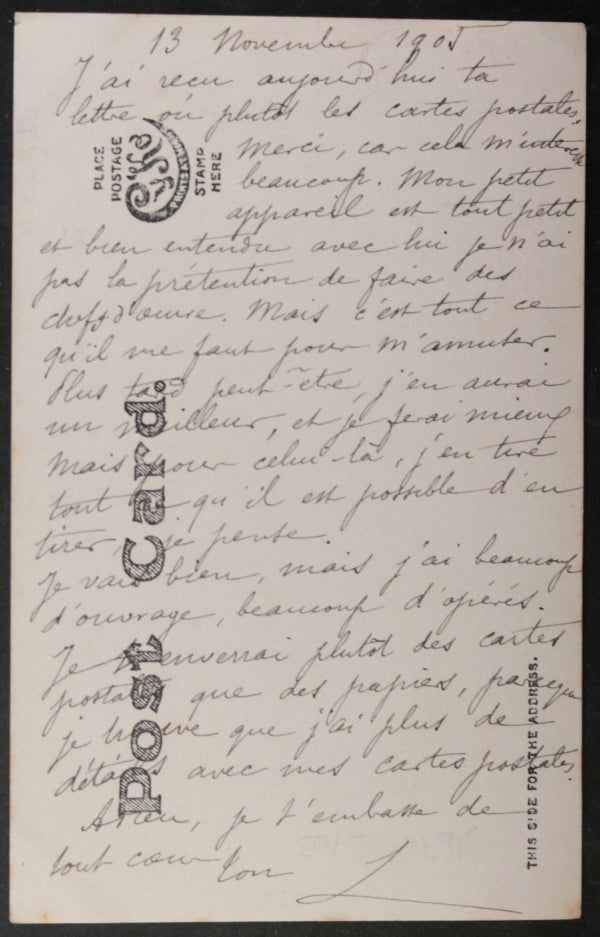 13 Novembre 1905
J'ai reçu aujourd'hui ta
lettre ou plutôt les cartes postales.
Merci, car cela m'intéresse
beaucoup. Mon petit
appareil est tout petit
et bien entendu avec lui je n'ai
pas la prétention de faire des
chefs d'œuvre. Mais c'est tout ce
qu'il me faut pour m'amuser.
Plus tard peut-être, j'en aurai
un meilleur, et je ferai mieux
Mais pour celui-là, j'en tire
tout ce qu'il est possible d'en
tirer, je pense.
Je vais bien, mais j'ai beaucoup
d'ouvrage, beaucoup d'opérés.
Je t'enverrai plutôt des cartes
postales que des papiers, parceque
je trouve que j'ai plus de
détails avec mes cartes postales.
Adieu, je t'embrasse de
tout cœur Ton L
PLACE
POSTAGE
STAMP
HERE
Post Card.
THIS SIDE FOR THE ADDRESS.